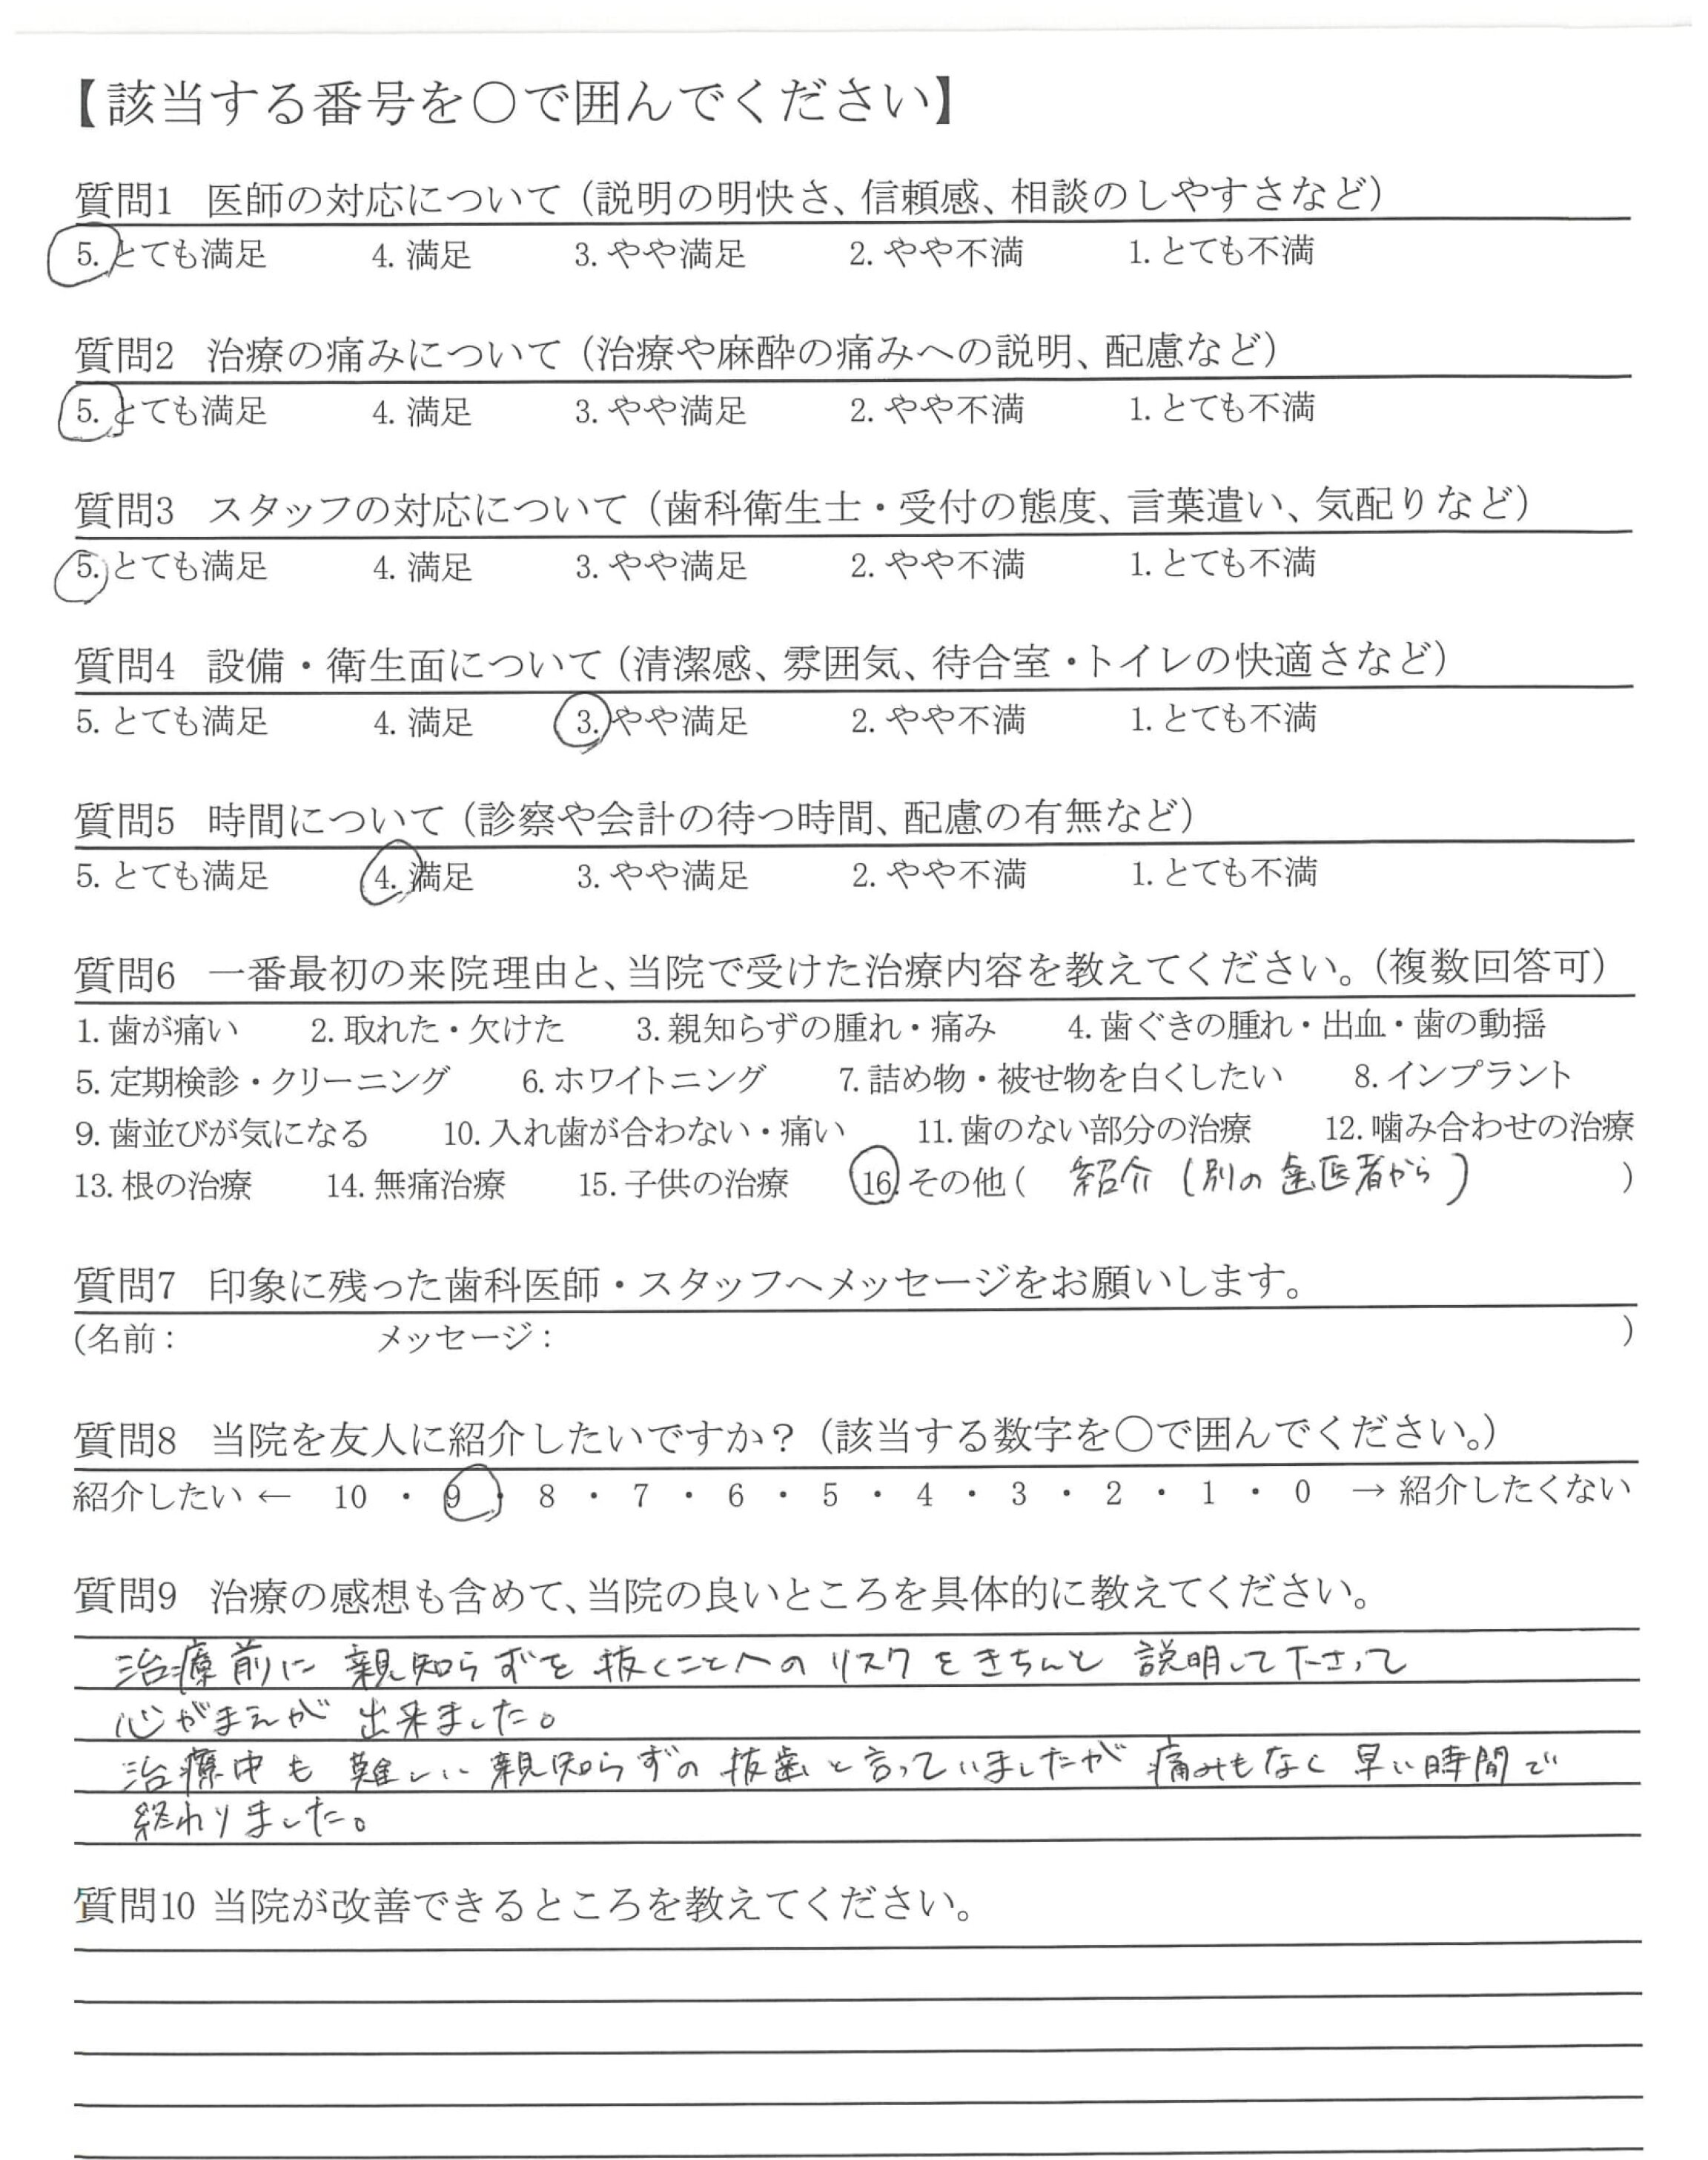 【該当する番号を○で囲んでください】
質問1 医師の対応について（説明の明快さ、信頼感、相談のしやすさなど）
5. とても満足 4. 満足 3. やや満足 2. やや不満 1. とても不満
質問2 治療の痛みについて（治療や麻酔の痛みへの説明、配慮など）
5. とても満足 4. 満足 3. やや満足 2. やや不満 1. とても不満
質問3 スタッフの対応について（歯科衛生士・受付の態度、言葉遣い、気配りなど）
5. とても満足 4. 満足 3. やや満足 2. やや不満 1. とても不満
質問4 設備・衛生面について（清潔感、雰囲気、待合室・トイレの快適さなど）
5. とても満足 4. 満足 3. やや満足 2. やや不満 1. とても不満
質問5 時間について（診察や会計の待つ時間、配慮の有無など）
5. とても満足 4. 満足 3. やや満足 2. やや不満 1. とても不満
質問6 一番最初の来院理由と、当院で受けた治療内容を教えてください。（複数回答可）
1. 歯が痛い 2. 取れた・欠けた 3. 親知らずの腫れ・痛み 4. 歯ぐきの腫れ・出血・歯の動揺
5. 定期検診・クリーニング 6. ホワイトニング 7. 詰め物・被せ物を白くしたい 8. インプラント
9. 歯並びが気になる 10. 入れ歯が合わない・痛い 11. 歯のない部分の治療 12. 噛み合わせの治療
13. 根の治療 14. 無痛治療 15. 子供の治療 16. その他（ 紹介（別の歯医者から） ）
質問7 印象に残った歯科医師・スタッフへメッセージをお願いします。
（名前： メッセージ： ）
質問8 当院を友人に紹介したいですか？（該当する数字を○で囲んでください。）
紹介したい ← 10 ・ 9 ・ 8 ・ 7 ・ 6 ・ 5 ・ 4 ・ 3 ・ 2 ・ 1 ・ 0 → 紹介したくない
質問9 治療の感想も含めて、当院の良いところを具体的に教えてください。
治療前に 親知らずを 抜くことへの リスクをきちんと 説明して下さって
心がまえが 出来ました。
治療中も 難しい 親知らずの 抜歯と言っていましたが 痛みもなく 早い時間で
終わりました。
質問10 当院が改善できるところを教えてください。